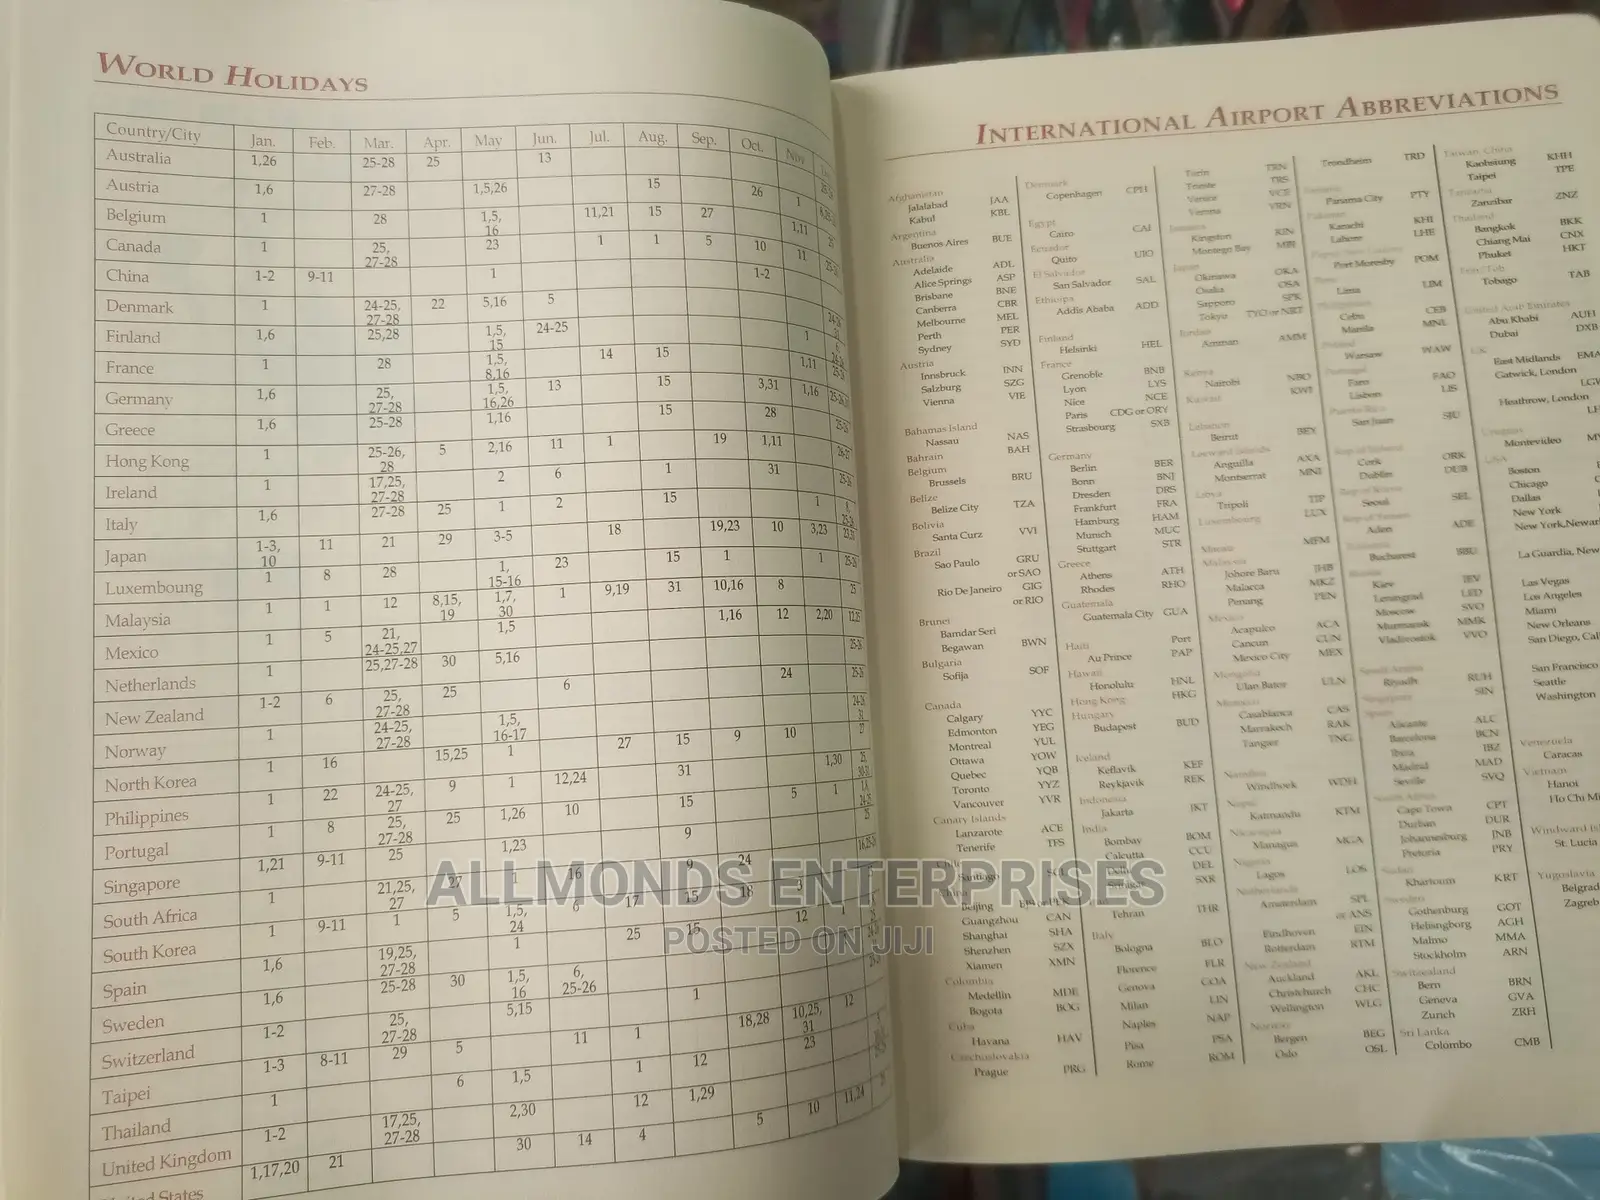 WORLD HOLIDAYS
Country/City Jan. Feb. Mar. Apr. May Jun. Jul. Aug. Sep. Oct. Nov
Australia 1,26 25-28 25 13
Austria 1,6 27-28 1,5,26 15 26 1
Belgium 1 28 1,5,16 11,21 15 27 1,11
Canada 1 25,27-28 23 1 1 5 10 11
China 1-2 9-11 1 1-2
Denmark 1 24-25,27-28 22 5,16 5
Finland 1,6 25,28 1,5,15 24-25 1
France 1 28 1,5,8,16 14 15 1,11
Germany 1,6 25,27-28 1,5,16,26 13 15 3,31 1,16
Greece 1,6 25-28 1,16 15 28
Hong Kong 1 25-26,28 5 2,16 11 1 19 1,11
Ireland 1 17,25,27-28 2 6 1 31
Italy 1,6 27-28 25 1 2 15 1
Japan 1-3,10 11 21 29 3-5 18 19,23 10 3,23
Luxembourg 1 8 28 1,15-16 23 15 1 1
Malaysia 1 1 12 8,15,19 1,7,30 1 9,19 31 10,16 8
Mexico 1 5 21,24-25,27 1,5 1,16 12 2,20
Netherlands 1 25,27-28 30 5,16
New Zealand 1-2 6 25,27-28 25 6 24
Norway 1 24-25,27-28 1,5,16-17
North Korea 1 16 15,25 1 27 15 9 10
Philippines 1 22 24-25,27 9 1 12,24 31 1,30
Portugal 1 8 25,27-28 25 1,26 10 15 5 1
Singapore 1,21 9-11 25 1,23 9
South Africa 1 21,25,27 27 1 16 9 24
South Korea 1 9-11 1 5 1,5,24 6 17 15 18 3
Spain 1,6 19,25,27-28 1 25 15 12
Sweden 1,6 25-28 30 1,5,16 6,25-26
Switzerland 1-2 25,27-28 5,15 1
Taipei 1-3 8-11 29 5 11 1 18,28 10,25,31 12
Thailand 1 6 1,5 1 12 23
United Kingdom 1-2 17,25,27-28 2,30 12 1,29
States 1,17,20 21 30 14 4 5 10 11,24
INTERNATIONAL AIRPORT ABBREVIATIONS
Afghanistan
Jalalabad JAA
Kabul KBL
Argentina
Buenos Aires BUE
Australia
Adelaide ADL
Alice Springs ASP
Brisbane BNE
Canberra CBR
Melbourne MEL
Perth PER
Sydney SYD
Austria
Innsbruck INN
Salzburg SZG
Vienna VIE
Bahamas Island
Nassau NAS
Bahrain BAH
Belgium
Brussels BRU
Belize
Belize City TZA
Bolivia
Santa Curz VVI
Brazil
Sao Paulo GRU
or SAO
Rio De Janeiro GIG
or RIO
Brunei
Bamdar Seri
Begawan BWN
Bulgaria
Sofija SOF
Canada
Calgary YYC
Edmonton YEG
Montreal YUL
Ottawa YOW
Quebec YQB
Toronto YYZ
Vancouver YVR
Canary Islands
Lanzarote ACE
Tenerife TFS
Santiago
China
Beijing
Guangzhou CAN
Shanghai SHA
Shenzhen SZX
Xiamen XMN
Colombia
Medellin MDE
Bogota BOG
Cuba
Havana HAV
Czechoslovakia
Prague PRG
Denmark
Copenhagen CPH
Egypt
Cairo CAI
Ecuador
Quito UIO
El Salvador
San Salvador SAL
Ethiopia
Addis Ababa ADD
Finland
Helsinki HEL
France
Grenoble BNB
Lyon LYS
Nice NCE
Paris CDG or ORY
Strasbourg SXB
Germany
Berlin BER
Bonn BNJ
Dresden DRS
Frankfurt FRA
Hamburg HAM
Munsch MUC
Stuttgart STR
Greece
Athens ATH
Rhodes RHO
Guatemala
Guatemala City GUA
Haiti Port
Au Prince PAP
Hawaii
Honolulu HNL
Hong Kong HKG
Hungary
Budapest BUD
Iceland
Keflavik KEF
Reykjavik REK
Indonesia
Jakarta JKT
India
Bombay BOM
Calcutta CCU
Delhi DEL
Srinigar SXR
Tehran THR
Italy
Bologna BLO
Florence FLR
Genova GOA
Milan LIN
Naples NAP
Pisa PSA
Rome ROM
Turin TRN
Trieste TRS
Venice VCE
Verona VRN
Jamaica
Kingston KIN
Montego Bay MBJ
Japan
Okinawa OKA
Osaka OSA
Sapporo SPK
Tokyo TYO or NRT
Jordan
Amman AMM
Kenya
Nairobi NBO
Kuwait KWI
Lebanon
Beirut BEY
Leeward Islands
Anguilla AXA
Montserrat MNI
Libya
Tripoli TIP
Luxembourg LUX
Macau MFM
Malaysia
Johore Baru JHB
Malacca MKZ
Penang PEN
Mexico
Acapulco ACA
Cancun CUN
Mexico City MEX
Mongolia
Ulan Bator ULN
Morocco
Casablanca CAS
Marrakech RAK
Tangier TNG
Namibia
Windhoek WDH
Nepal
Katmandu KTM
Nicaragua
Managua MGA
Nigeria
Lagos LOS
Netherlands
Amsterdam SPL
or ANS
Eindhoven EIN
Rotterdam RTM
New Zealand
Auckland AKL
Christchurch CHC
Wellington WLG
Norway
Bergen BEG
Oslo OSL
Trondheim TRD
Panama City PTY
Pakistan
Karachi KHI
Lahore LHE
Port Moresby POM
Lima LIM
Cebu CEB
Manila MNL
Warsaw WAW
Portugal
Faro FAO
Lisbon LIS
Puerto Rico
San Juan SJU
Cork ORK
Dublin DUB
Seoul SEL
Aden ADE
Bucharest BBU
Kiev IEV
Leningrad LED
Moscow SVO
Murmansk MMK
Vladivostok VVO
Saudi Arabia
Riyadh RUH
Singapore SIN
Spain
Alicante ALC
Barcelona BCN
Ibiza IBZ
Madrid MAD
Seville SVQ
South Africa
Cape Town CPT
Durban DUR
Johannesburg JNB
Pretoria PRY
Sudan
Khartoum KRT
Sweden
Gothenburg GOT
Helsingborg AGH
Malmo MMA
Stockholm ARN
Switzealand
Bern BRN
Geneva GVA
Zurich ZRH
Sri Lanka
Colombo CMB
Taiwan China
Kaohsiung KHH
Taipei TPE
Tanzania
Zanzibar ZNZ
Thailand
Bangkok BKK
Chiang Mai CNX
Phuket HKT
Tobago TAB
United Arab Emirates
Abu Khabi AUH
Dubai DXB
UK
East Midlands EMA
Gatwick, London
LGW
Heathrow, London
Uruguay
Montevideo
USA
Boston
Chicago
Dallas
New York
New York,Newar
La Guardia, New
Las Vegas
Los Angeles
Miami
New Orleans
San Diego, Cal
San Francisco
Seattle
Washington
Venezuela
Caracas
Vietnam
Hanoi
Ho Chi Mi
Windward Isl
St. Lucia
Yugoslavia
Belgrad
Zagreb
ALLMONDS ENTERPRISES
POSTED ON JIJI